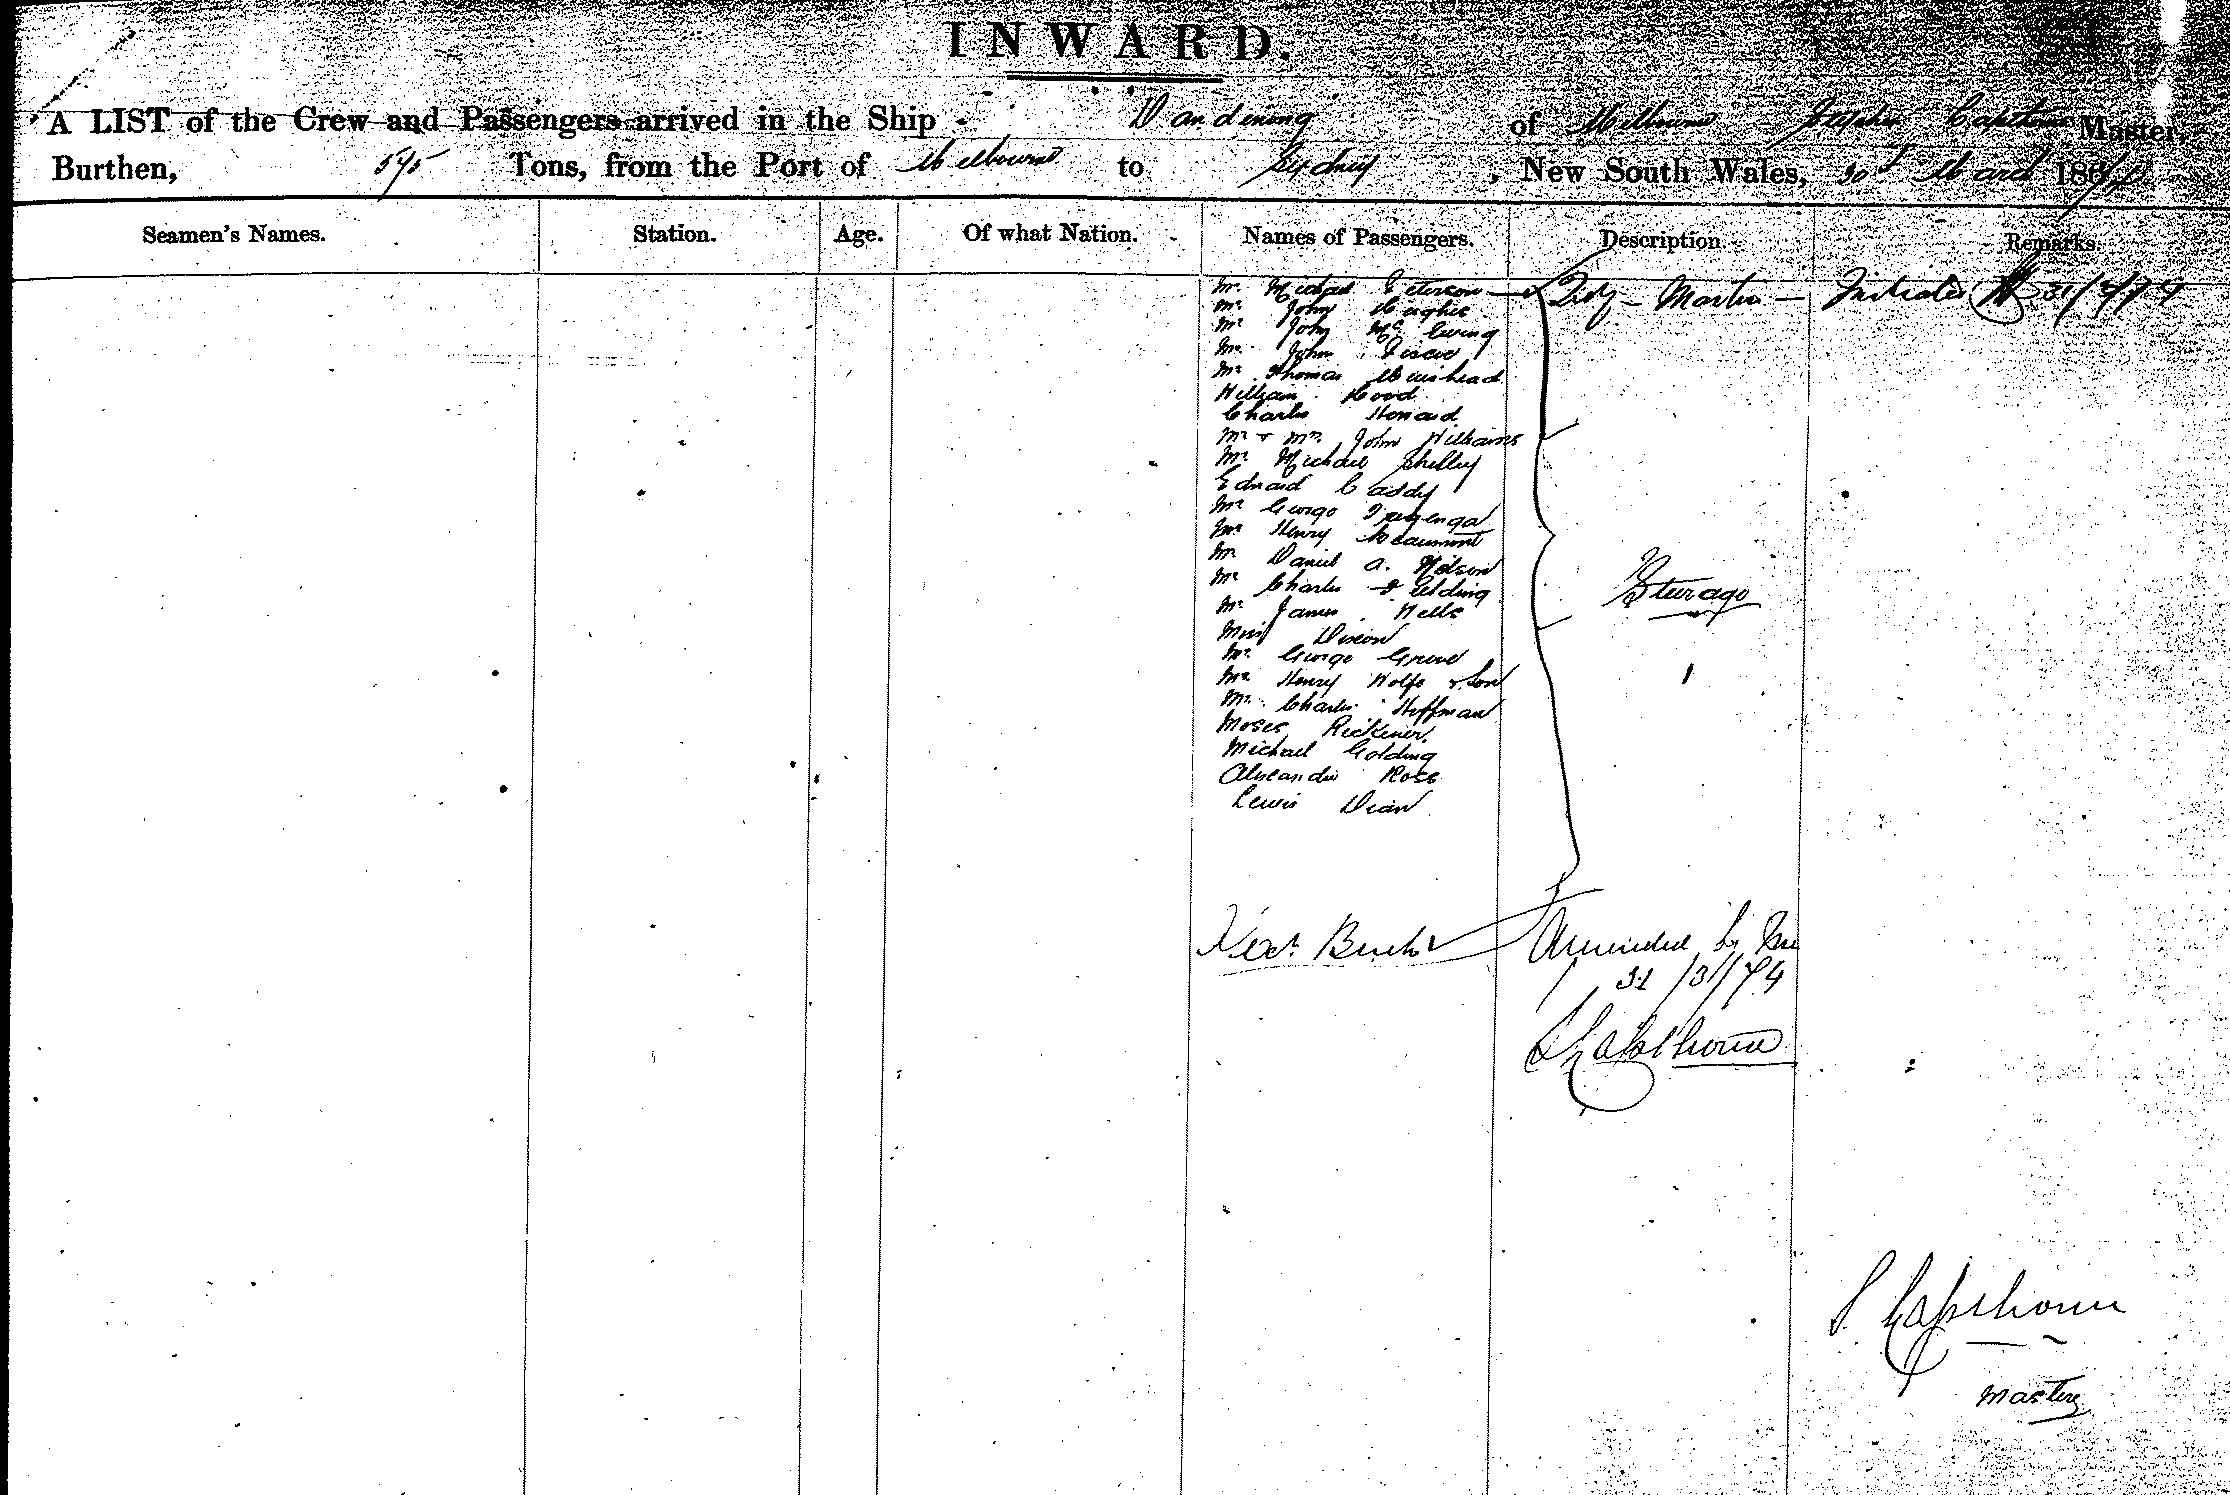 INWARD.
A LIST of the Crew and Passengers arrived in the Ship Dandenong of Melbourne Stephen Capthorne Master,
Burthen, 575 Tons, from the Port of Melbourne to Sydney, New South Wales, March 186
Seamen's Names. Station. Age. Of what Nation. Names of Passengers. Description. Remarks.
Mr Michael Peterson
Mr John Hughes
Mr John McEwing
Mr John
Mr Thomas Muirhead
William Hood
Charles Howard
Mr & Mrs John Williams
Mr Michael Shelley
Edward Caddy
Mr George Tregenga
Mr Henry Beaumont
Mr Daniel A. Wilson
Mr Charles Fielding
Mr James Wells
Miss Dixon
Mr George Grove
Mr Henry Wolfe & Son
Mr Charles Hoffman
Moses Rickener
Michael Golding
Alexander Ross
Lewis Dean
Steerage
Burk
Amended by me
31/3/74
S Capthorne
S Capthorne
Master